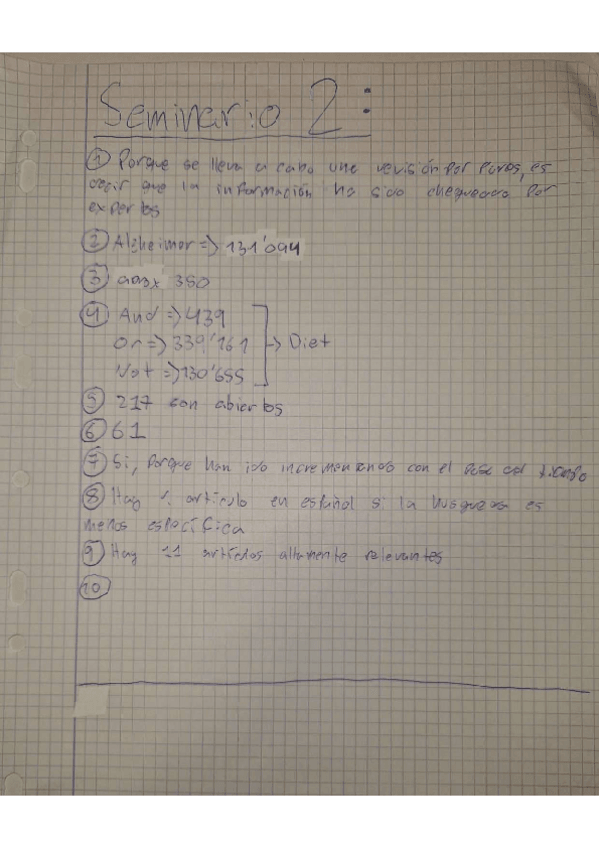 Seminario 2:
① Porque se lleva a cabo una revisión por pares, es
decir que la información ha sido chequeada por
expertos
② Alzheimer => 131'094
③ 380
④ And => 439
Or => 339'161 → Diet
Not => 130'655
⑤ 217 son abiertos
⑥ 61
⑦ Si, porque han ido incrementando con el paso del tiempo
⑧ Hay 1 artículo en español si la busqueda es
menos específica
⑨ Hay 11 artículos altamente relevantes
⑩